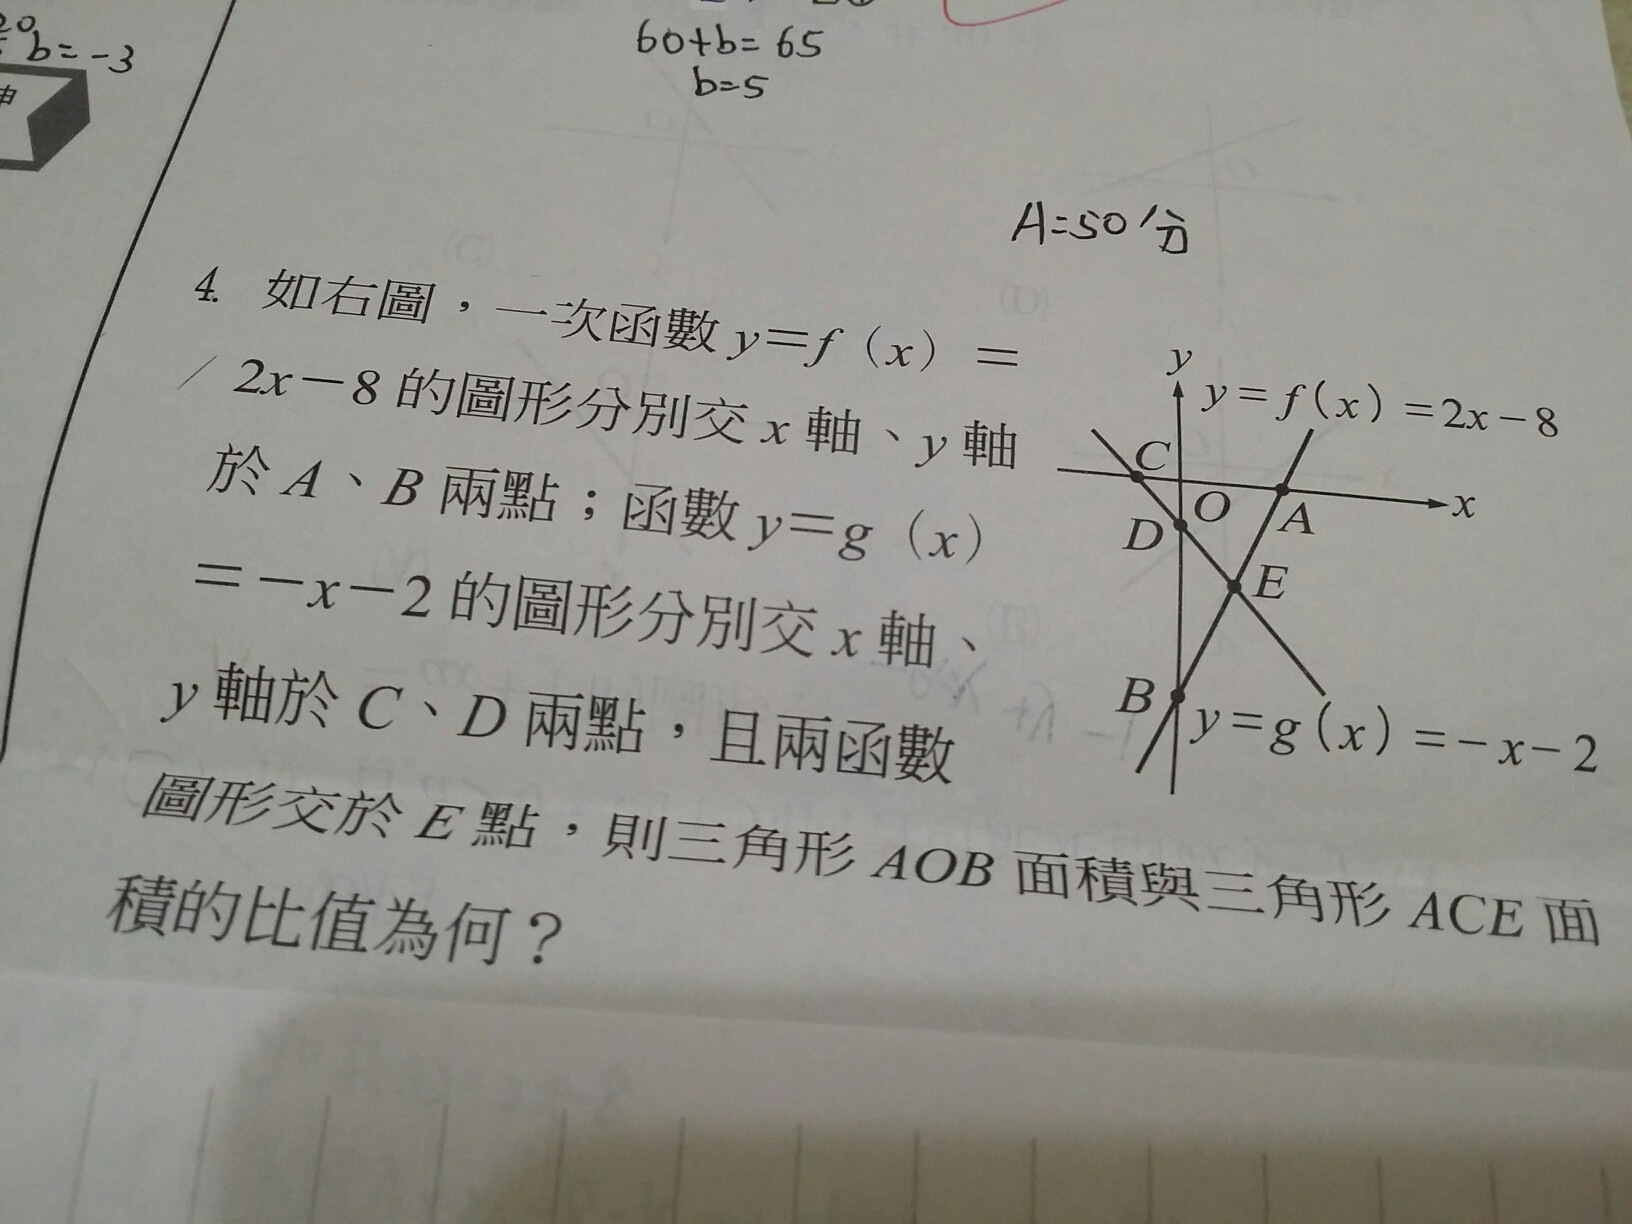 b=-3
60+b=65
b=5
A=50分
4. 如右圖，一次函數 y=f（x）=
2x-8 的圖形分別交 x 軸、y 軸
於 A、B 兩點；函數 y=g（x）
=-x-2 的圖形分別交 x 軸、
y 軸於 C、D 兩點，且兩函數
圖形交於 E 點，則三角形 AOB 面積與三角形 ACE 面
積的比值為何？
y
y=f(x)=2x-8
C
O
A
x
D
E
B
y=g(x)=-x-2